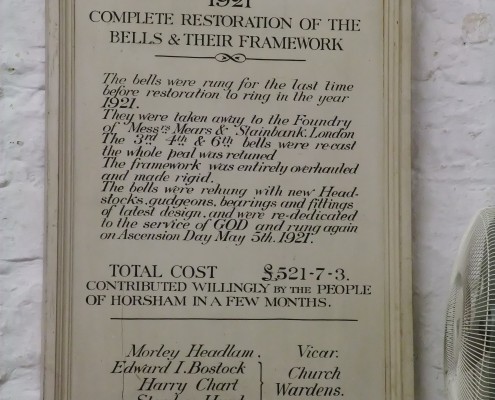 1921
COMPLETE RESTORATION OF THE
BELLS & THEIR FRAMEWORK
The bells were rung for the last time
before restoration to ring in the year
1921.
They were taken away to the Foundry
of Messrs Mears & Stainbank, London
The 3rd 4th & 6th bells were recast
the whole peal was retuned
The framework was entirely overhauled
and made rigid.
The bells were rehung with new Head-
stocks, gudgeons, bearings and fittings
of latest design, and were re-dedicated
to the service of GOD and rung again
on Ascension Day May 5th. 1921.
TOTAL COST £521-7-3.
CONTRIBUTED WILLINGLY BY THE PEOPLE
OF HORSHAM IN A FEW MONTHS.
Morley Headlam. Vicar.
Edward I. Bostock Church
Harry Chart Wardens.